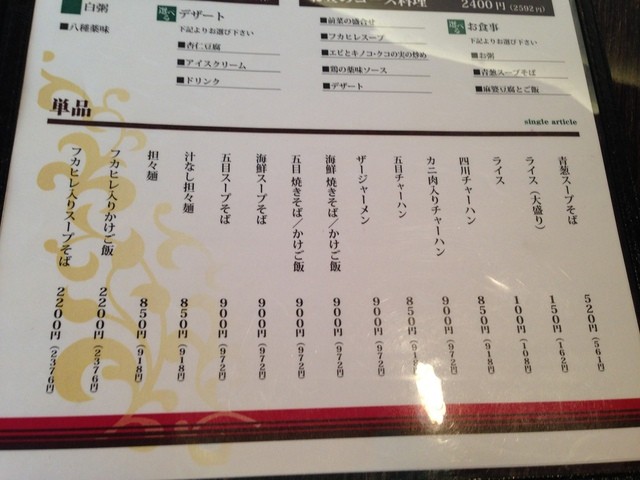 白粥
■八種薬味
選べる デザート
下記よりお選び下さい
■杏仁豆腐
■アイスクリーム
■ドリンク
コース料理
2400円(2592円)
■前菜の盛合せ
■フカヒレスープ
■エビとキノコ・クコの実の炒め
■鶏の薬味ソース
■デザート
選べる お食事
下記よりお選び下さい
■お粥
■青葱スープそば
■麻婆豆腐とご飯
単品
single article
青葱スープそば 520円(561円)
ライス(大盛り) 150円(162円)
ライス 100円(108円)
四川チャーハン 850円(918円)
カニ肉入りチャーハン 900円(972円)
五目チャーハン 850円(918円)
ザージャーメン 900円(972円)
海鮮 焼きそば/かけご飯 900円(972円)
五目 焼きそば/かけご飯 900円(972円)
海鮮スープそば 900円(972円)
五目スープそば 900円(972円)
汁なし担々麺 850円(918円)
担々麺 850円(918円)
フカヒレ入りかけご飯 2200円(2376円)
フカヒレ入りスープそば 2200円(2376円)